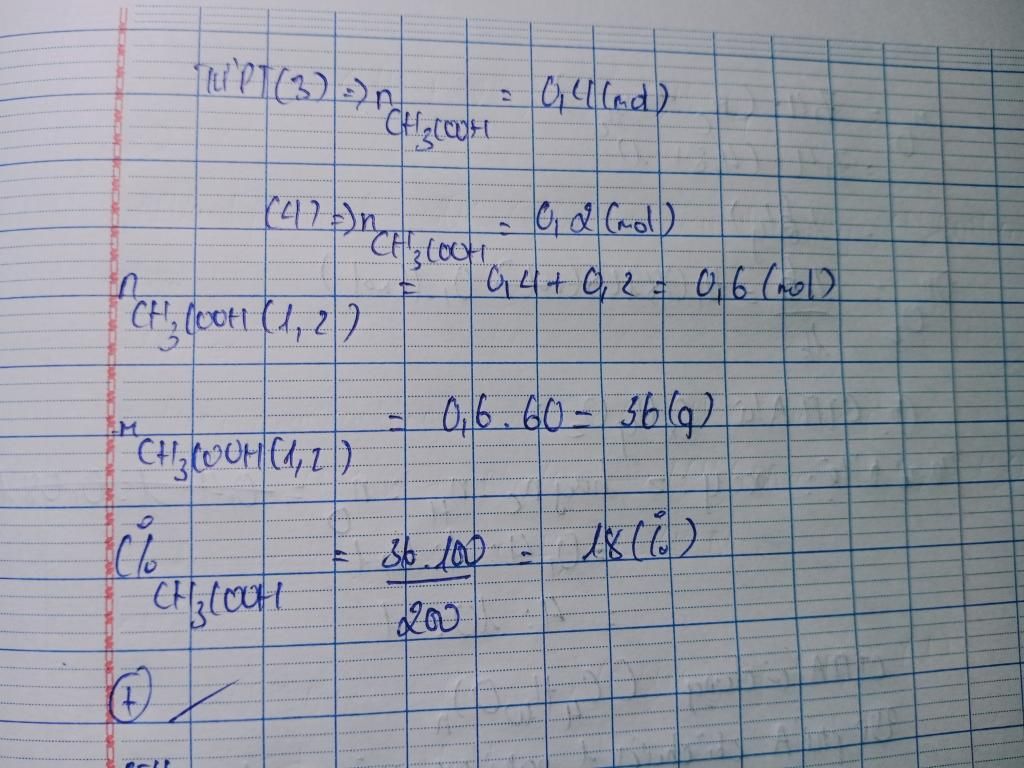 THPT(3) => n CH3COOH = 0,4 (mol)
(4) => n CH3COOH = 0,2 (mol)
n CH3COOH (1,2) = 0,4 + 0,2 = 0,6 (mol)
m CH3COOH (1,2) = 0,6 . 60 = 36 (g)
C% CH3COOH = 36.100 / 200 = 18 (%)
+